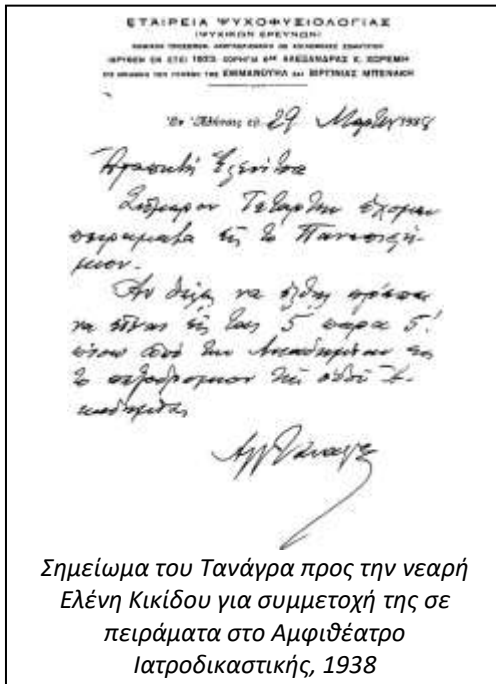 ΕΤΑΙΡΕΙΑ ΨΥΧΟΦΥΣΙΟΛΟΓΙΑΣ
(ΨΥΧΙΚΩΝ ΕΡΕΥΝΩΝ)
ΝΟΜΙΚΟΝ ΠΡΟΣΩΠΟΝ
ΙΔΡΥΘΕΝ ΕΝ ΕΤΕΙ 1923 ΧΟΡΗΓΙᾼ ΑΛΕΞΑΝΔΡΑΣ Κ. ΧΩΡΕΜΗ
ΤΗΣ ΕΜΜΑΝΟΥΗΛ ΚΑΙ ΒΙΡΓΙΝΙΑΣ ΜΠΕΝΑΚΗ
Ἐν Ἀθήναις τῇ 29 Μαρτίου 1938
Ἀγαπητὴ Ἑλενίτσα
Σήμερον Τετάρτην ἔχομεν
πειράματα εἰς τὸ Πανεπιστή-
μιον.
Ἂν θέλῃς νὰ ἔλθῃς πρέπει
νὰ εἶσαι εἰς τὰς 5 παρὰ 5!
πίσω ἀπὸ τὴν Ἀκαδημίαν εἰς
τὸ πεζοδρόμιον τῆς ὁδοῦ Ἀ-
καδημίας
Ἀγγ Τανάγρας
Σημείωμα του Τανάγρα προς την νεαρή
Ελένη Κικίδου για συμμετοχή της σε
πειράματα στο Αμφιθέατρο
Ιατροδικαστικής, 1938